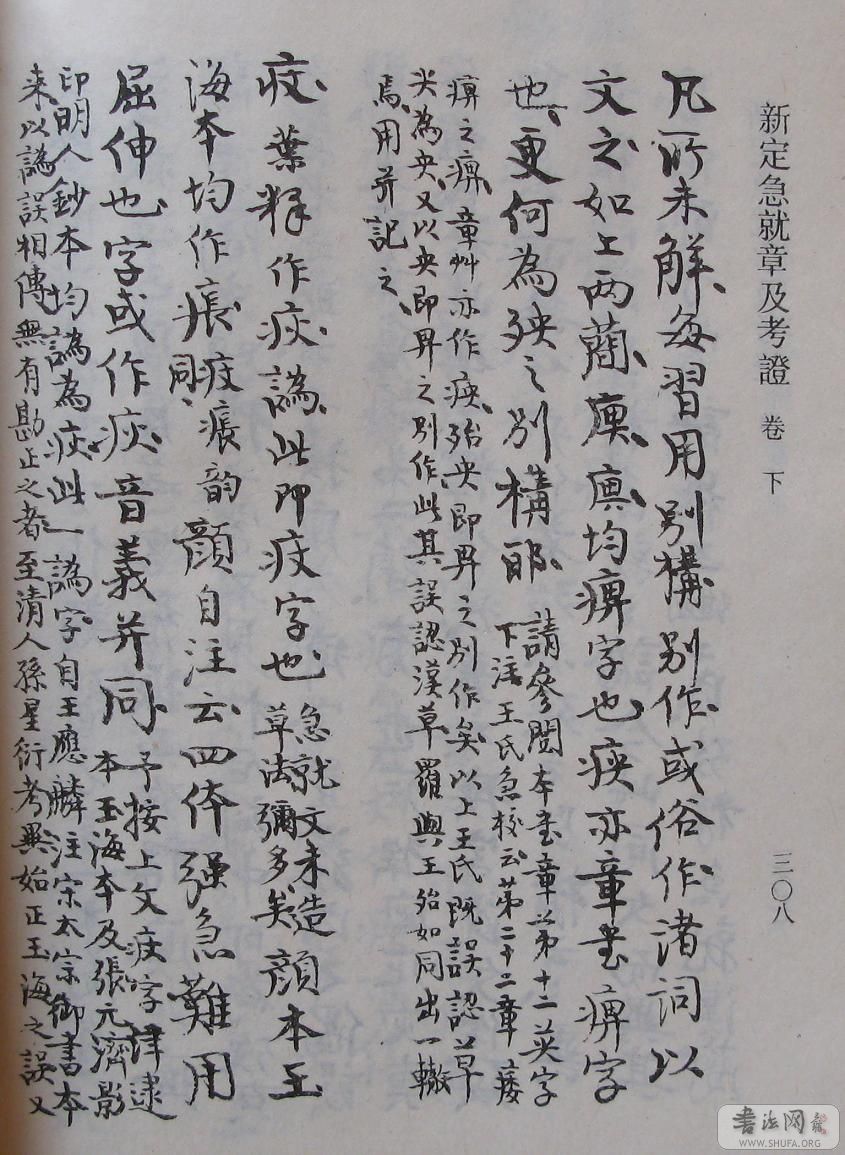 新定急就章及考證 卷下
三〇八
凡所未解每習用別構別作或俗作渚詞以
文之如上两蕳痺均痺字也瘐亦章書痺字
也更何為殃之別構耶
請參閱本書章草第十二英字
下注王氏急校云第二十二章痿
痺之痺章艸亦作瘐殆央即畀之別作矣以上王氏既誤認草
尖為央又以央即畀之別作此其誤認漢草羅與王殆如同出一轍
焉用并記之
疲葉釋作疢譌此即疲字也
急就文未造
草法彌多矣
顏本玉
海本均作痮疲痮韵同顏自注云四体强急難用
屈伸也字或作疢音義并同
予按上文疢字詳逮
本玉海本及張元濟影
印明人鈔本均譌為疢此一譌字自王應麟注宗太宗御書本
来以譌誤相傳無有勘正之者至清人孫星衍考異始正玉海之誤又
書法网
WWW.SHUFA.ORG